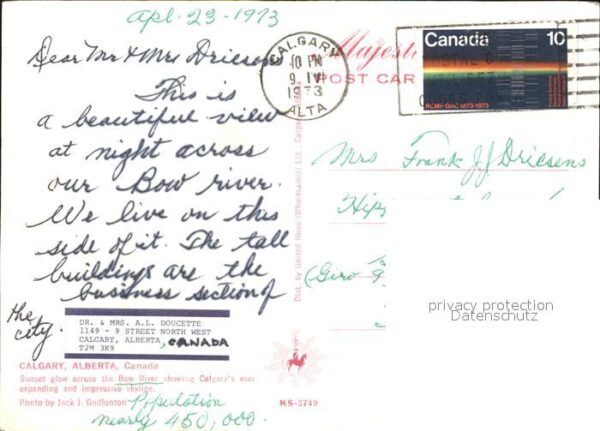 Apl. 23-1973
Dear Mr & Mrs Driesens
This is
a beautiful view
at night across
our Bow river.
We live on this
side of it. The tall
buildings are the
business section of
the
city.
DR. & MRS. A.L. DOUCETTE
1149 - 9 STREET NORTH WEST
CALGARY, ALBERTA, CANADA
T2M 3K9
CALGARY, ALBERTA, Canada
Sunset glow across the Bow River showing Calgary's ever
expanding and impressive skyline.
Photo by Jack J. Godlonton
Population
nearly 450,000.
KS-2749
Dist. by United News (Wholesalers) Ltd., Calgary, Alberta
Majesti
POST CAR
CALGARY
10 PM
9 IV
1973
ALTA
Canada 10
RCMP-GRC 1873-1973
Mrs. Frank J. J. Driesens
(Giro
privacy protection
Datenschutz